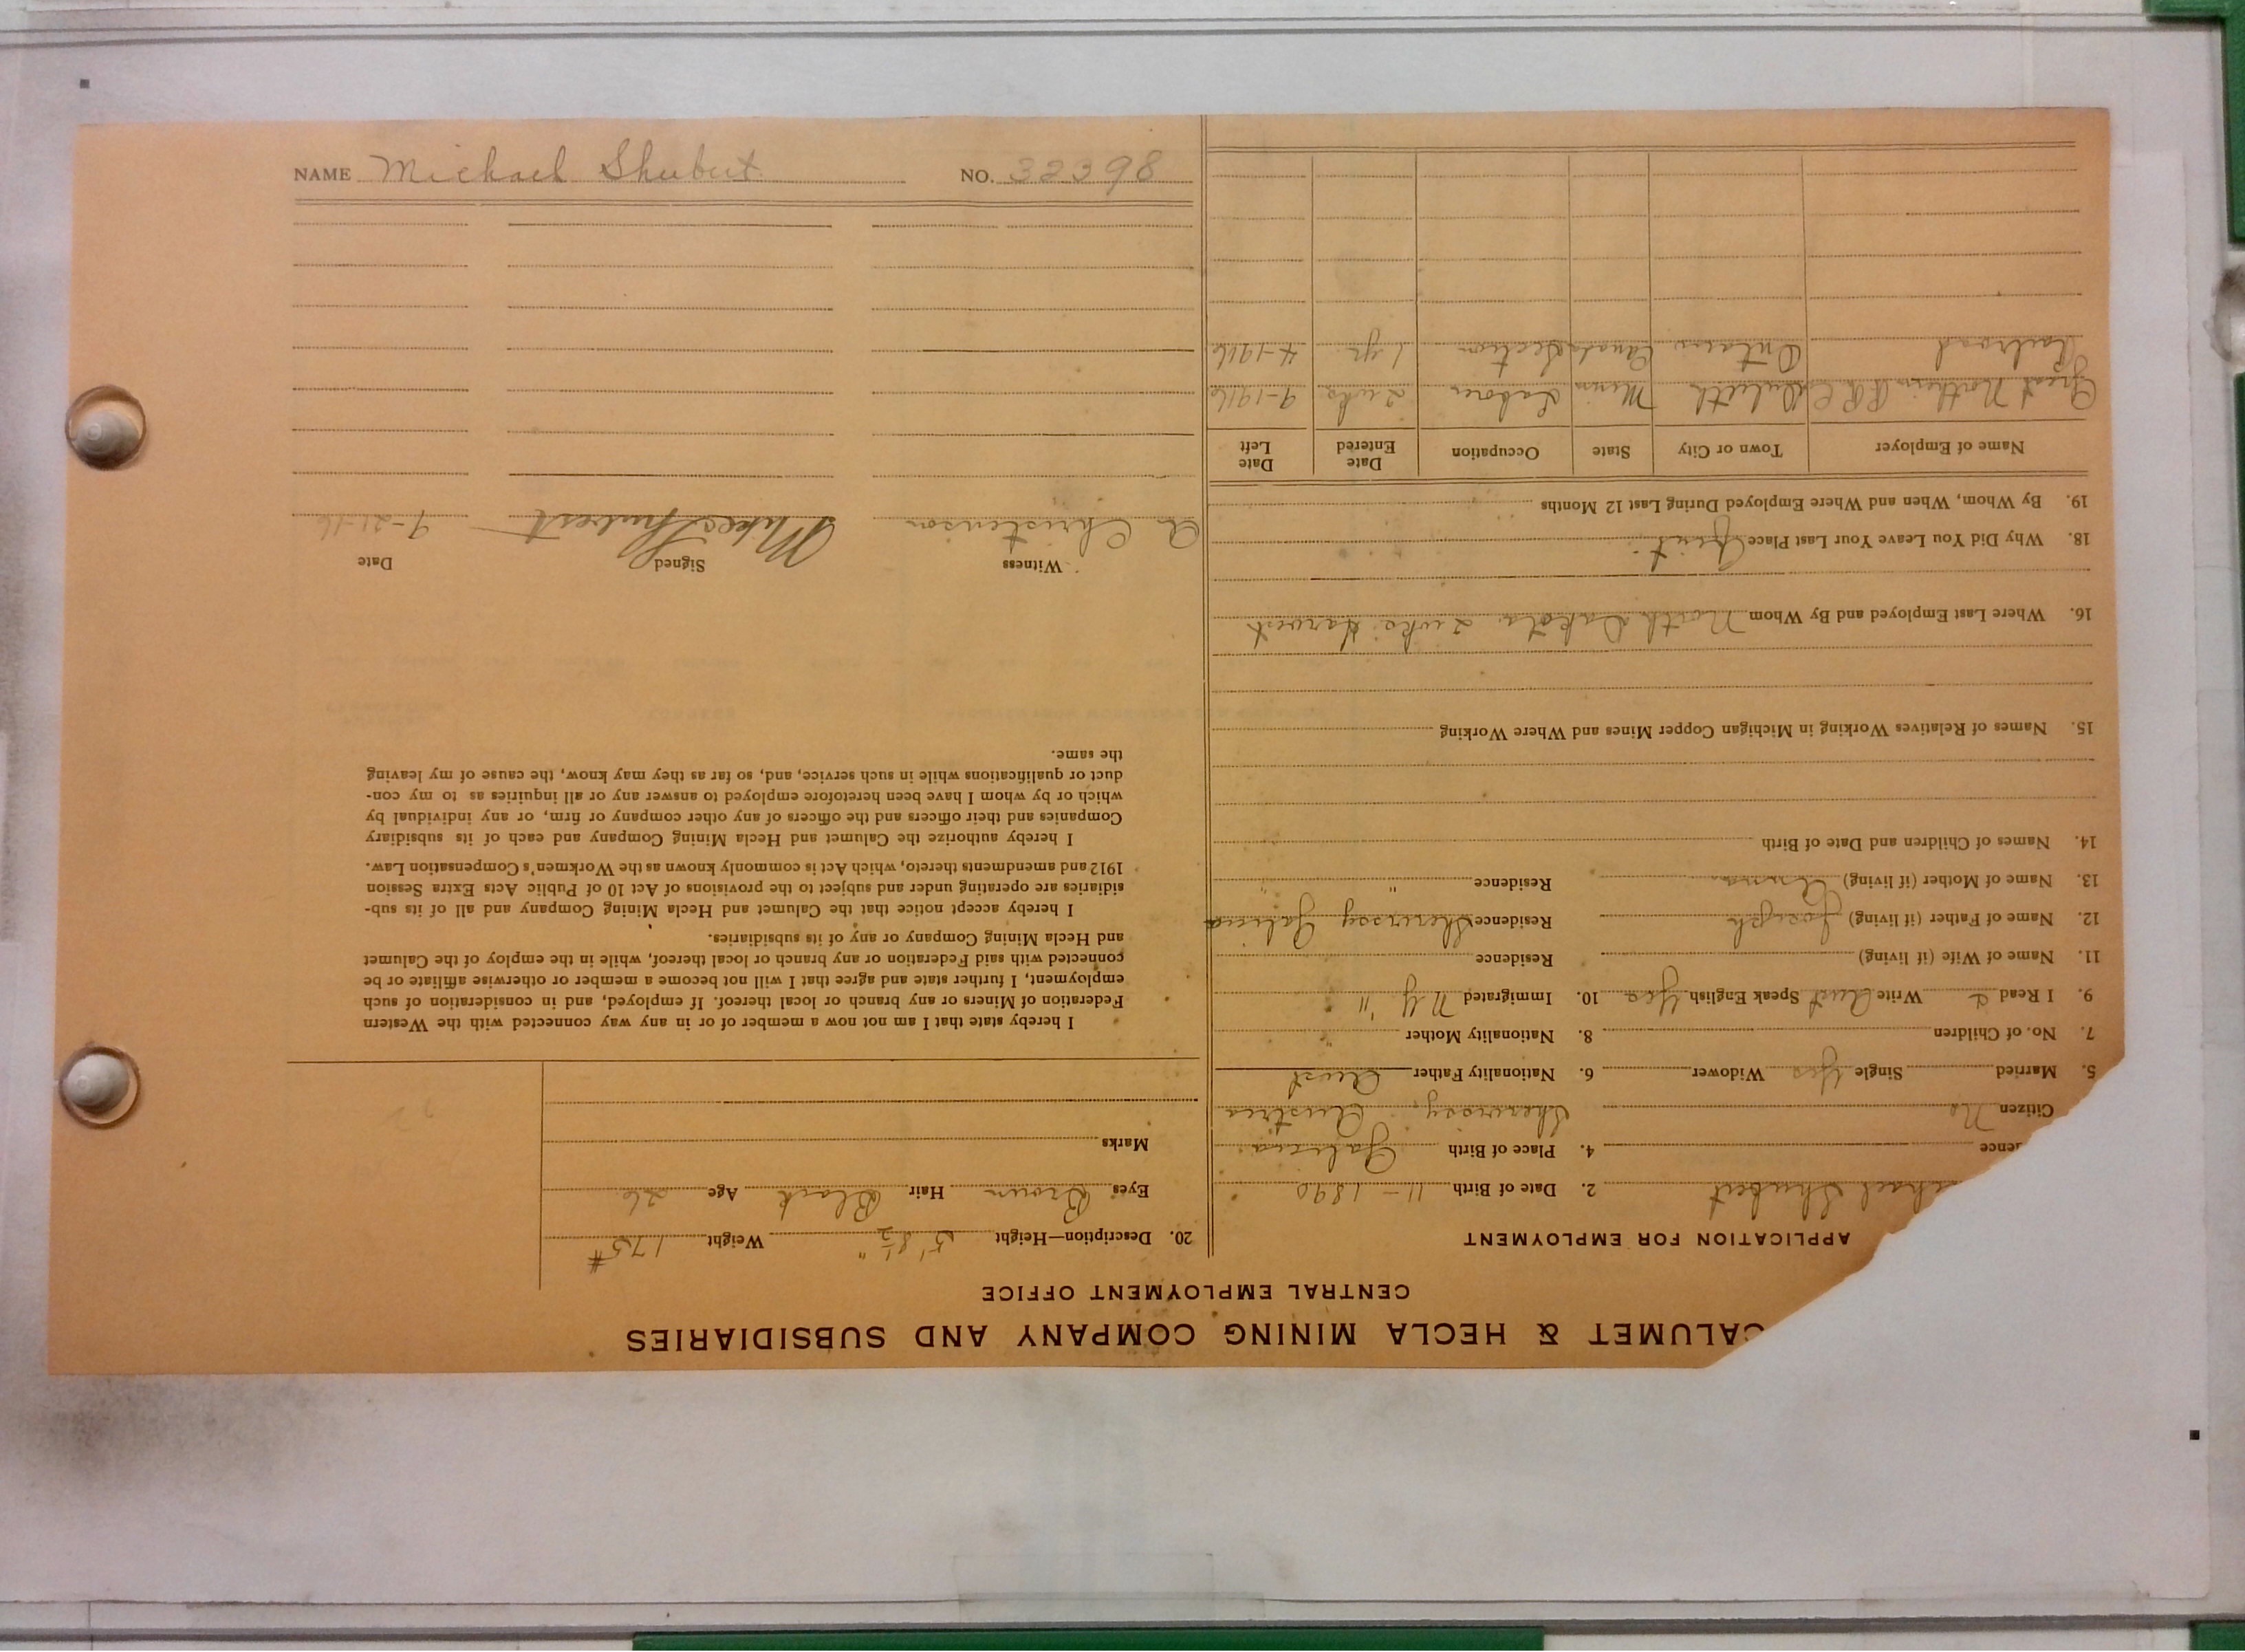 NAME Michael Shubert NO. 32398
CALUMET & HECLA MINING COMPANY AND SUBSIDIARIES
CENTRAL EMPLOYMENT OFFICE
APPLICATION FOR EMPLOYMENT
chael Shubert 2. Date of Birth 11 - 1890
ence 4. Place of Birth Galicia
Citizen No Austria
5. Married Single Yes Widower 6. Nationality Father Aust
7. No. of Children 8. Nationality Mother "
9. I Read & Write Aust Speak English Yes 10. Immigrated N Y "
11. Name of Wife (if living) Residence
12. Name of Father (if living) Joseph Residence Galicia
13. Name of Mother (if living) Anna Residence " "
14. Names of Children and Date of Birth
15. Names of Relatives Working in Michigan Copper Mines and Where Working
16. Where Last Employed and By Whom North Dakota 2 wks Harvest
18. Why Did You Leave Your Last Place Quit
19. By Whom, When and Where Employed During Last 12 Months
Name of Employer Town or City State Occupation Date Entered Date Left
Great Northern R R C Duluth Minn Laborer 2 wks 9-1916
Railroad Ontario Canada Section 1 yr 4-1916
20. Description—Height 5' 8½" Weight 175#
Eyes Brown Hair Black Age 26
Marks
I hereby state that I am not now a member of or in any way connected with the Western
Federation of Miners or any branch or local thereof. If employed, and in consideration of such
employment, I further state and agree that I will not become a member or otherwise affiliate or be
connected with said Federation or any branch or local thereof, while in the employ of the Calumet
and Hecla Mining Company or any of its subsidiaries.
I hereby accept notice that the Calumet and Hecla Mining Company and all of its sub-
sidiaries are operating under and subject to the provisions of Act 10 of Public Acts Extra Session
1912 and amendments thereto, which Act is commonly known as the Workmen's Compensation Law.
I hereby authorize the Calumet and Hecla Mining Company and each of its subsidiary
Companies and their officers and the officers of any other company or firm, or any individual by
which or by whom I have been heretofore employed to answer any or all inquiries as to my con-
duct or qualifications while in such service, and, so far as they may know, the cause of my leaving
the same.
Witness Signed Date
A Christenson Mike Shubert 9-21-16